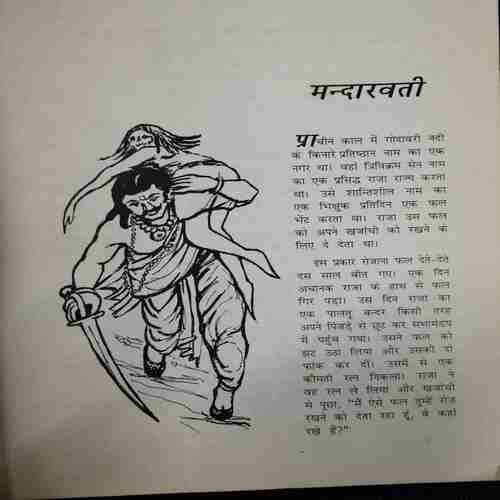 मन्दारवती
प्राचीन काल में गोदावरी नदी
के किनारे प्रतिष्ठान नाम का एक
नगर था। वहां त्रिविक्रम सेन नाम
का एक प्रसिद्ध राजा राज्य करता
था। उसे शान्तिशील नाम का
एक भिक्षुक प्रतिदिन एक फल
भेंट करता था। राजा उस फल
को अपने खजांची को रखने के
लिए दे देता था।
इस प्रकार रोजाना फल देते-देते
दस साल बीत गए। एक दिन
अचानक राजा के हाथ से फल
गिर पड़ा। उस दिन राजा का
एक पालतू बन्दर किसी तरह
अपने पिंजड़े से छूट कर सभामंडप
में पहुंच गया। उसने फल को
झट उठा लिया और उसकी दो
फांक कर दीं। उसमें से एक
कीमती रत्न निकला। राजा ने
वह रत्न ले लिया और खजांची
से पूछा, "मैं ऐसे फल तुम्हें रोज
रखने को देता रहा हूं, वे कहां
रखे हैं?"